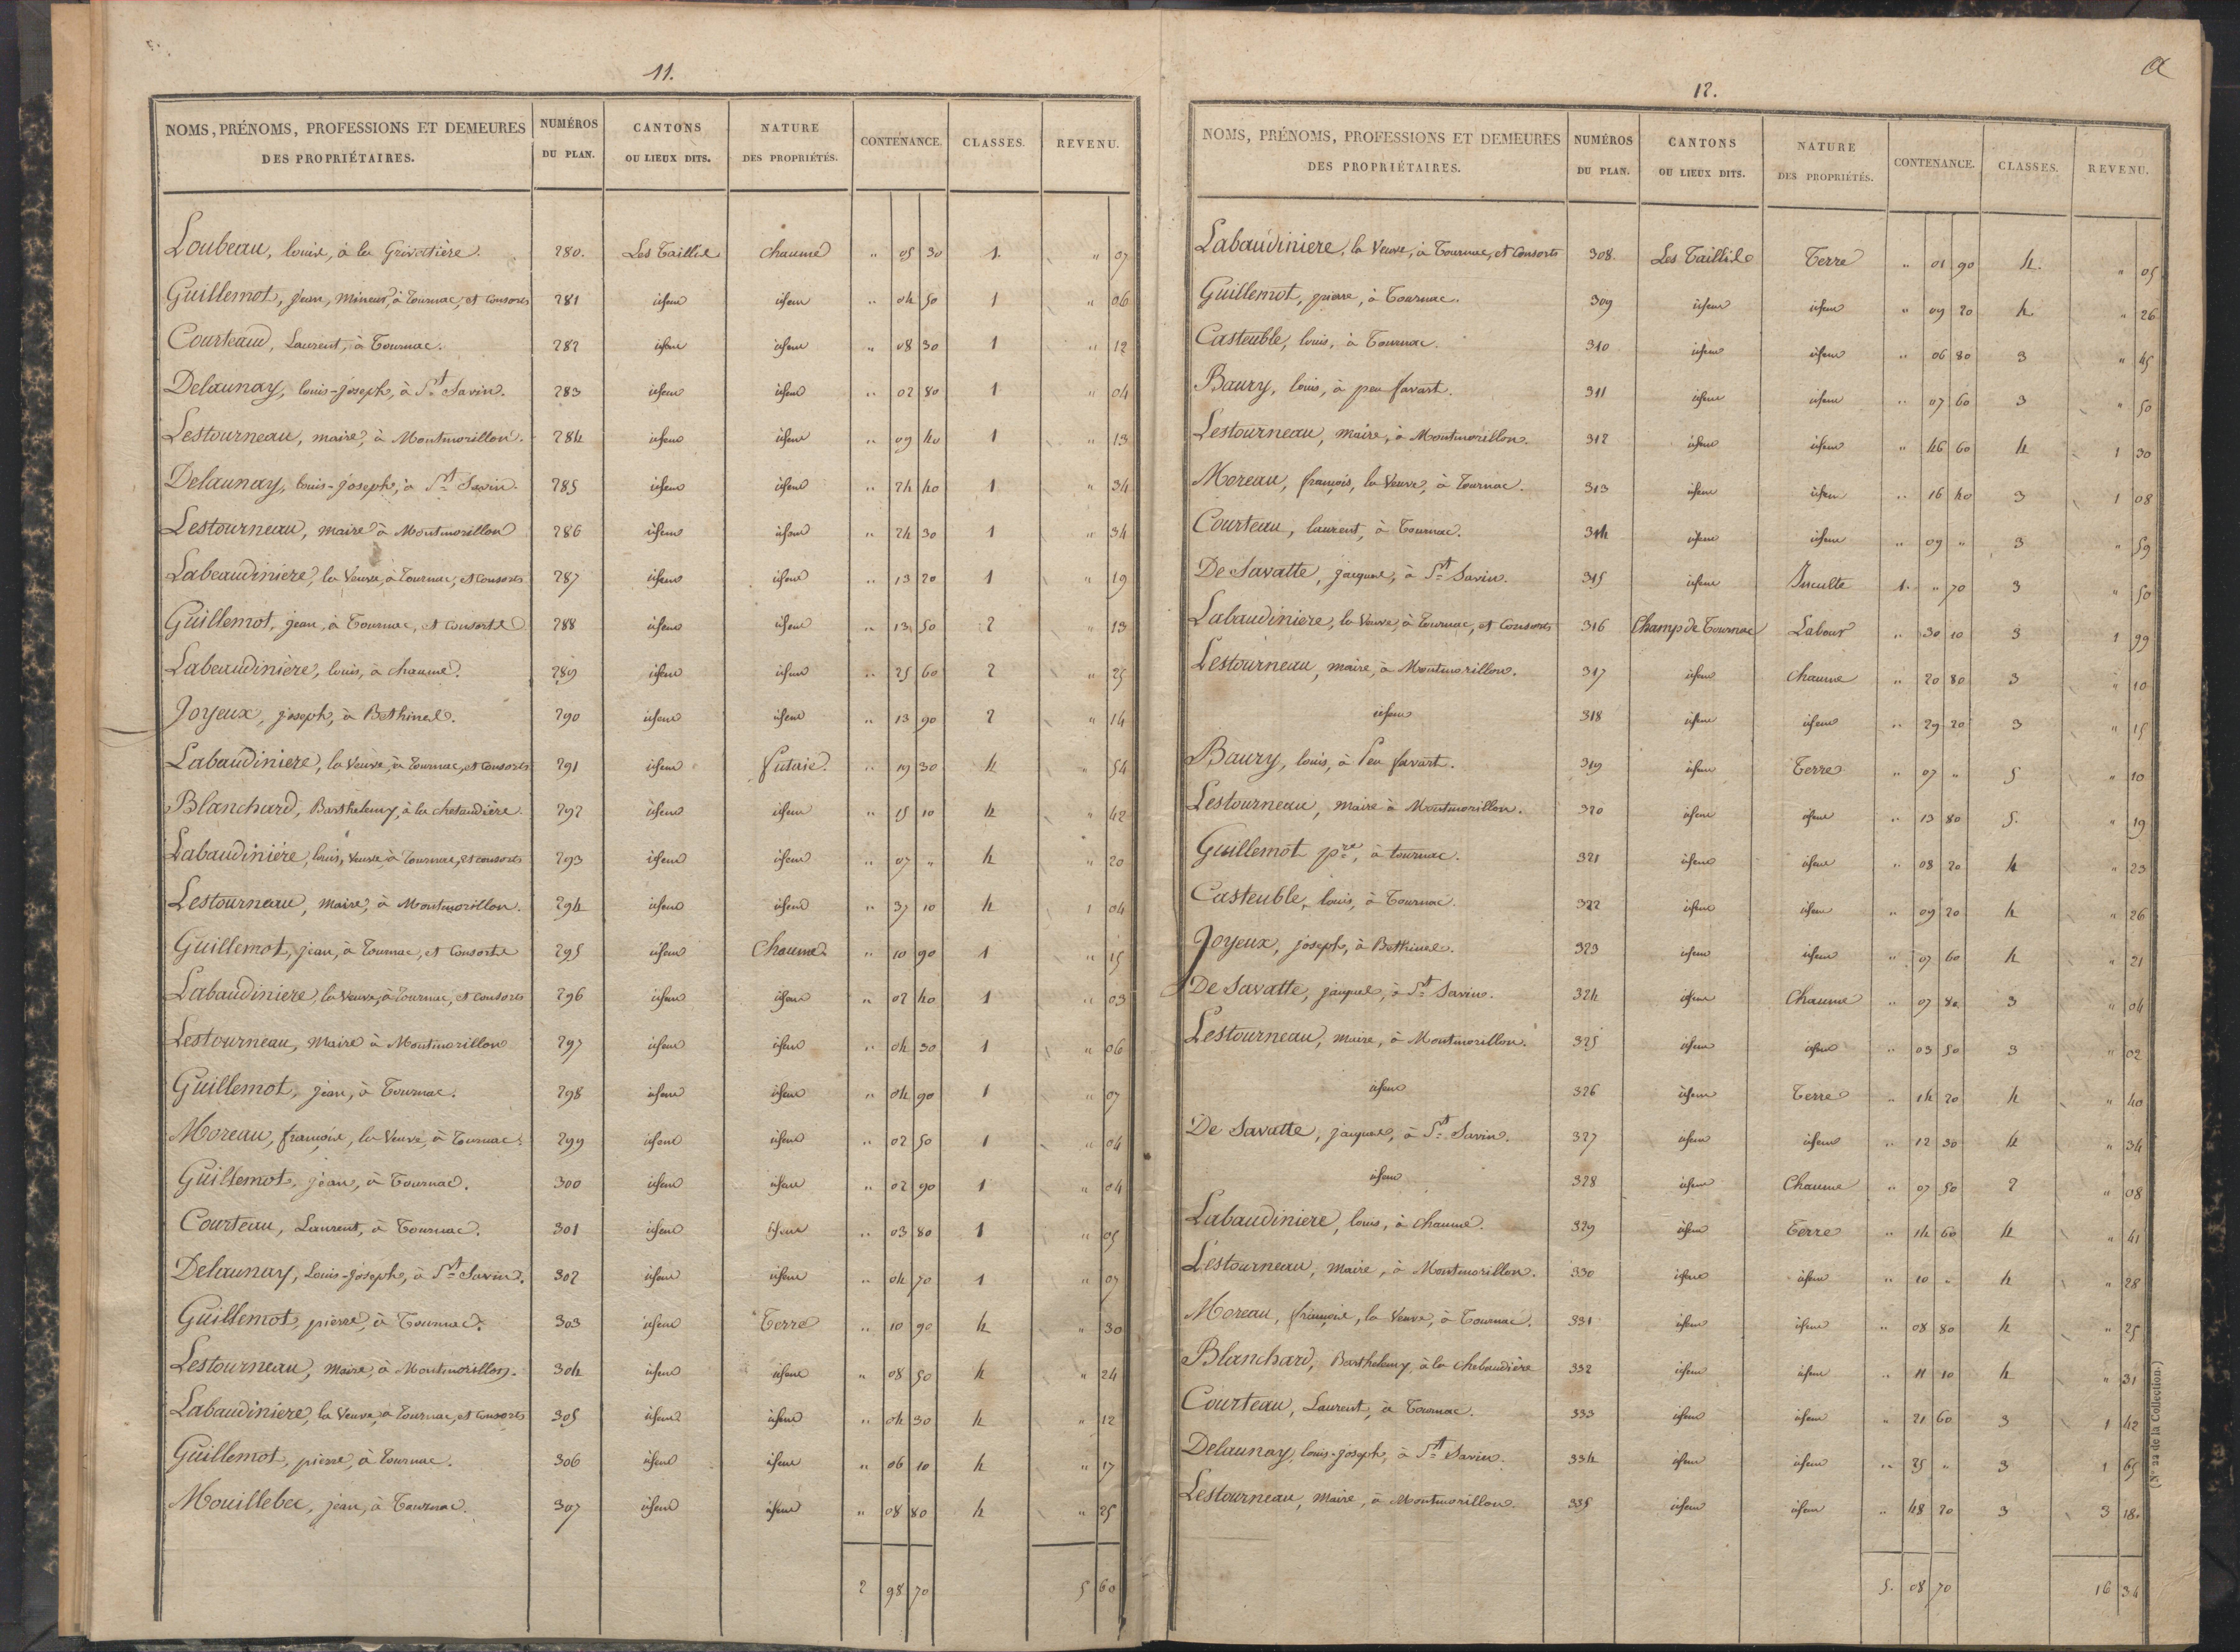 11.
NOMS, PRÉNOMS, PROFESSIONS ET DEMEURES DES PROPRIÉTAIRES. NUMÉROS DU PLAN. CANTONS OU LIEUX DITS. NATURE DES PROPRIÉTÉS. CONTENANCE. CLASSES. REVENU.
Loubeau, louis, à la 280. Les Taillis chaume " 05 30 1. " 07
Guillemot, jean, mineur, à Tournac, et Consorts 281 idem idem " 04 50 1 " 06
Courteaud, Laurent, à Tournac. 282 idem idem " 08 30 1 " 12
Delaunay, louis-joseph, à St Savin. 283 idem idem " 02 80 1 " 04
Lestourneau, maire, à Montmorillon. 284 idem idem " 09 40 1 " 13
Delaunay, louis-joseph, à St Savin. 285 idem idem " 24 40 1 " 34
Lestourneau, maire à Montmorillon 286 idem idem " 24 30 1 " 34
Labeaudiniere, la Veuve, à Tournac, et Consorts 287 idem idem " 13 20 1 " 19
Guillemot, jean, à Tournac, et Consorts 288 idem idem " 13 50 2 " 13
Labeaudinière, louis, à chaume. 289 idem idem " 25 60 2 " 25
Joyeux, joseph, à Bethines. 290 idem idem " 13 90 2 " 14
Labaudiniere, la Veuve, à Tournac, et Consorts 291 idem futaie. " 19 30 4 " 54
Blanchard, Barthelemy, à la chebaudière. 292 idem idem " 15 10 4 " 42
Labaudinière, louis, Veuve à Tournac, et consorts 293 idem idem " 07 " 4 " 20
Lestourneau, maire, à Montmorillon. 294 idem idem " 37 10 4 1 04
Guillemot, jean, à Tournac, et Consorts 295 idem Chaume " 10 90 1 " 15
Labaudiniere, la Veuve, à Tournac, et Consorts 296 idem idem " 02 40 1 " 03
Lestourneau, Maire à Montmorillon 297 idem idem " 04 30 1 " 06
Guillemot, jean, à Tournac. 298 idem idem " 04 90 1 " 07
Moreau, françois, la Veuve, à Tournac. 299 idem idem " 02 50 1 " 04
Guillemot, jean, à Tournac. 300 idem idem " 02 90 1 " 04
Courteau, Laurent, à Tournac. 301 idem idem " 03 80 1 " 05
Delaunay, Louis-joseph, à St Savin. 302 idem idem " 04 70 1 " 07
Guillemot, pierre, à Tournac. 303 idem Terre " 10 90 4 " 30
Lestourneau, Maire, à Montmorillon. 304 idem idem " 08 50 4 " 24
Labaudiniere, la Veuve, à Tournac, et Consorts 305 idem idem " 04 30 4 " 12
Guillemot, pierre, à Tournac. 306 idem idem " 06 10 4 " 17
Mouillebec, jean, à Tournac. 307 idem idem " 08 80 4 " 25
2 98 70 5 60
12.
NOMS, PRÉNOMS, PROFESSIONS ET DEMEURES DES PROPRIÉTAIRES. NUMÉROS DU PLAN. CANTONS OU LIEUX DITS. NATURE DES PROPRIÉTÉS. CONTENANCE. CLASSES. REVENU.
Labaudiniere, la Veuve, à Tournac, et Consorts 308. Les Taillis Terre " 01 90 4. " 05
Guillemot, pierre, à Tournac. 309 idem idem " 09 20 4. " 26
Casteuble, louis, à Tournac. 310 idem idem " 06 80 3 " 45
Baury, louis, à peu favart. 311 idem idem " 07 60 3 " 50
Lestourneau, maire, à Montmorillon. 312 idem idem " 46 60 4 1 30
Moreau, françois, la Veuve, à Tournac. 313 idem idem " 16 40 3 1 08
Courteau, laurent, à Tournac. 314 idem idem " 09 " 3 " 59
De Savatte, jacques, à St Savin. 315 idem Inculte 1. " 70 3 " 50
Labaudiniere, la Veuve, à Tournac, et Consorts 316 Champ de Tournac Labour " 30 10 3 1 99
Lestourneau, maire, à Montmorillon. 317 idem Chaume " 20 80 3 " 10
idem 318 idem idem " 29 20 3 " 15
Baury, louis, à Peu favart. 319 idem Terre " 07 " 5 " 10
Lestourneau, maire à Montmorillon. 320 idem idem " 13 80 5. " 19
Guillemot pre, à tournac. 321 idem idem " 08 20 4 " 23
Casteuble, louis, à Tournac. 322 idem idem " 09 20 4 " 26
Joyeux, joseph, à Bethines. 323 idem idem " 07 60 4 " 21
De Savatte, jacques, à St Savin. 324 idem Chaume " 07 80 3 " 04
Lestourneau, maire, à Montmorillon. 325 idem idem " 03 50 3 " 02
idem 326 idem Terre " 14 20 4 " 40
De Savatte, jacques, à St Savin. 327 idem idem " 12 30 4 " 34
idem 328 idem Chaume " 07 50 2 " 08
Labaudiniere, louis, à chaume. 329 idem Terre " 14 60 4 " 41
Lestourneau, maire, à Montmorillon. 330 idem idem " 10 " 4 " 28
Moreau, françois, la Veuve, à Tournac. 331 idem idem " 08 80 4 " 25
Blanchard, Barthelemy, à la chebaudière 332 idem idem " 11 10 4 " 31
Courteau, Laurent, à Tournac. 333 idem idem " 21 60 3 1 42
Delaunay, louis-joseph, à St Savin. 334 idem idem " 25 " 3 1 65
Lestourneau, Maire, à Montmorillon. 335 idem idem " 48 20 3 3 18.
5. 08 70 16 34
(N° 22 de la Collection.)